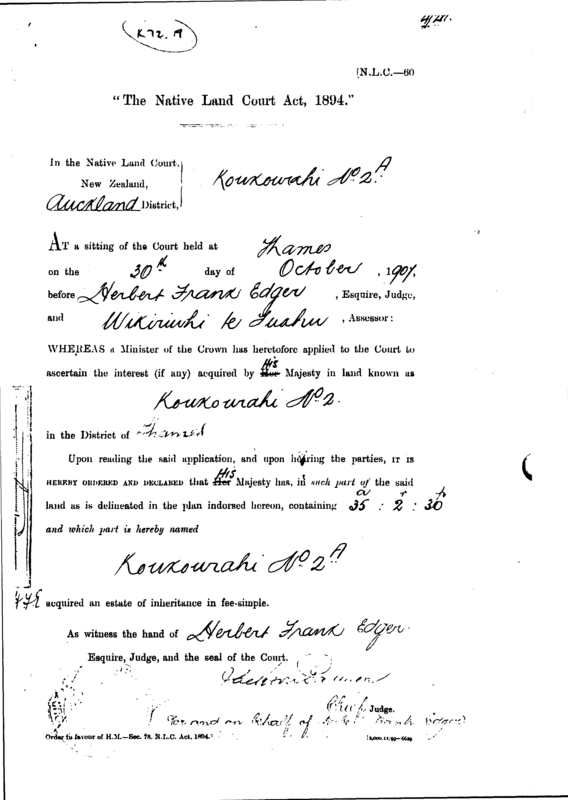 K72.19
[N.L.C.—60
"The Native Land Court Act, 1894."
In the Native Land Court,
New Zealand,
Auckland District,
Koukourahi No. 2A
AT a sitting of the Court held at Thames
on the 30th day of October, 1907,
before Herbert Frank Edger, Esquire, Judge,
and Wikiriwhi te Tuahu, Assessor:
WHEREAS a Minister of the Crown has heretofore applied to the Court to
His
ascertain the interest (if any) acquired by Her Majesty in land known as
Koukourahi No. 2.
in the District of Thames
Upon reading the said application, and upon hearing the parties, IT IS
His
HEREBY ORDERED AND DECLARED that Her Majesty has, in such part of the said
a r p
land as is delineated in the plan indorsed hereon, containing 35 : 2 : 30
and which part is hereby named
Koukourahi No. 2A
acquired an estate of inheritance in fee-simple.
As witness the hand of Herbert Frank Edger
Esquire, Judge, and the seal of the Court.
Chief Judge.
For and on behalf of Frank Edger
Order in favour of H.M.—Sec. 78. N.L.C. Act, 1894.